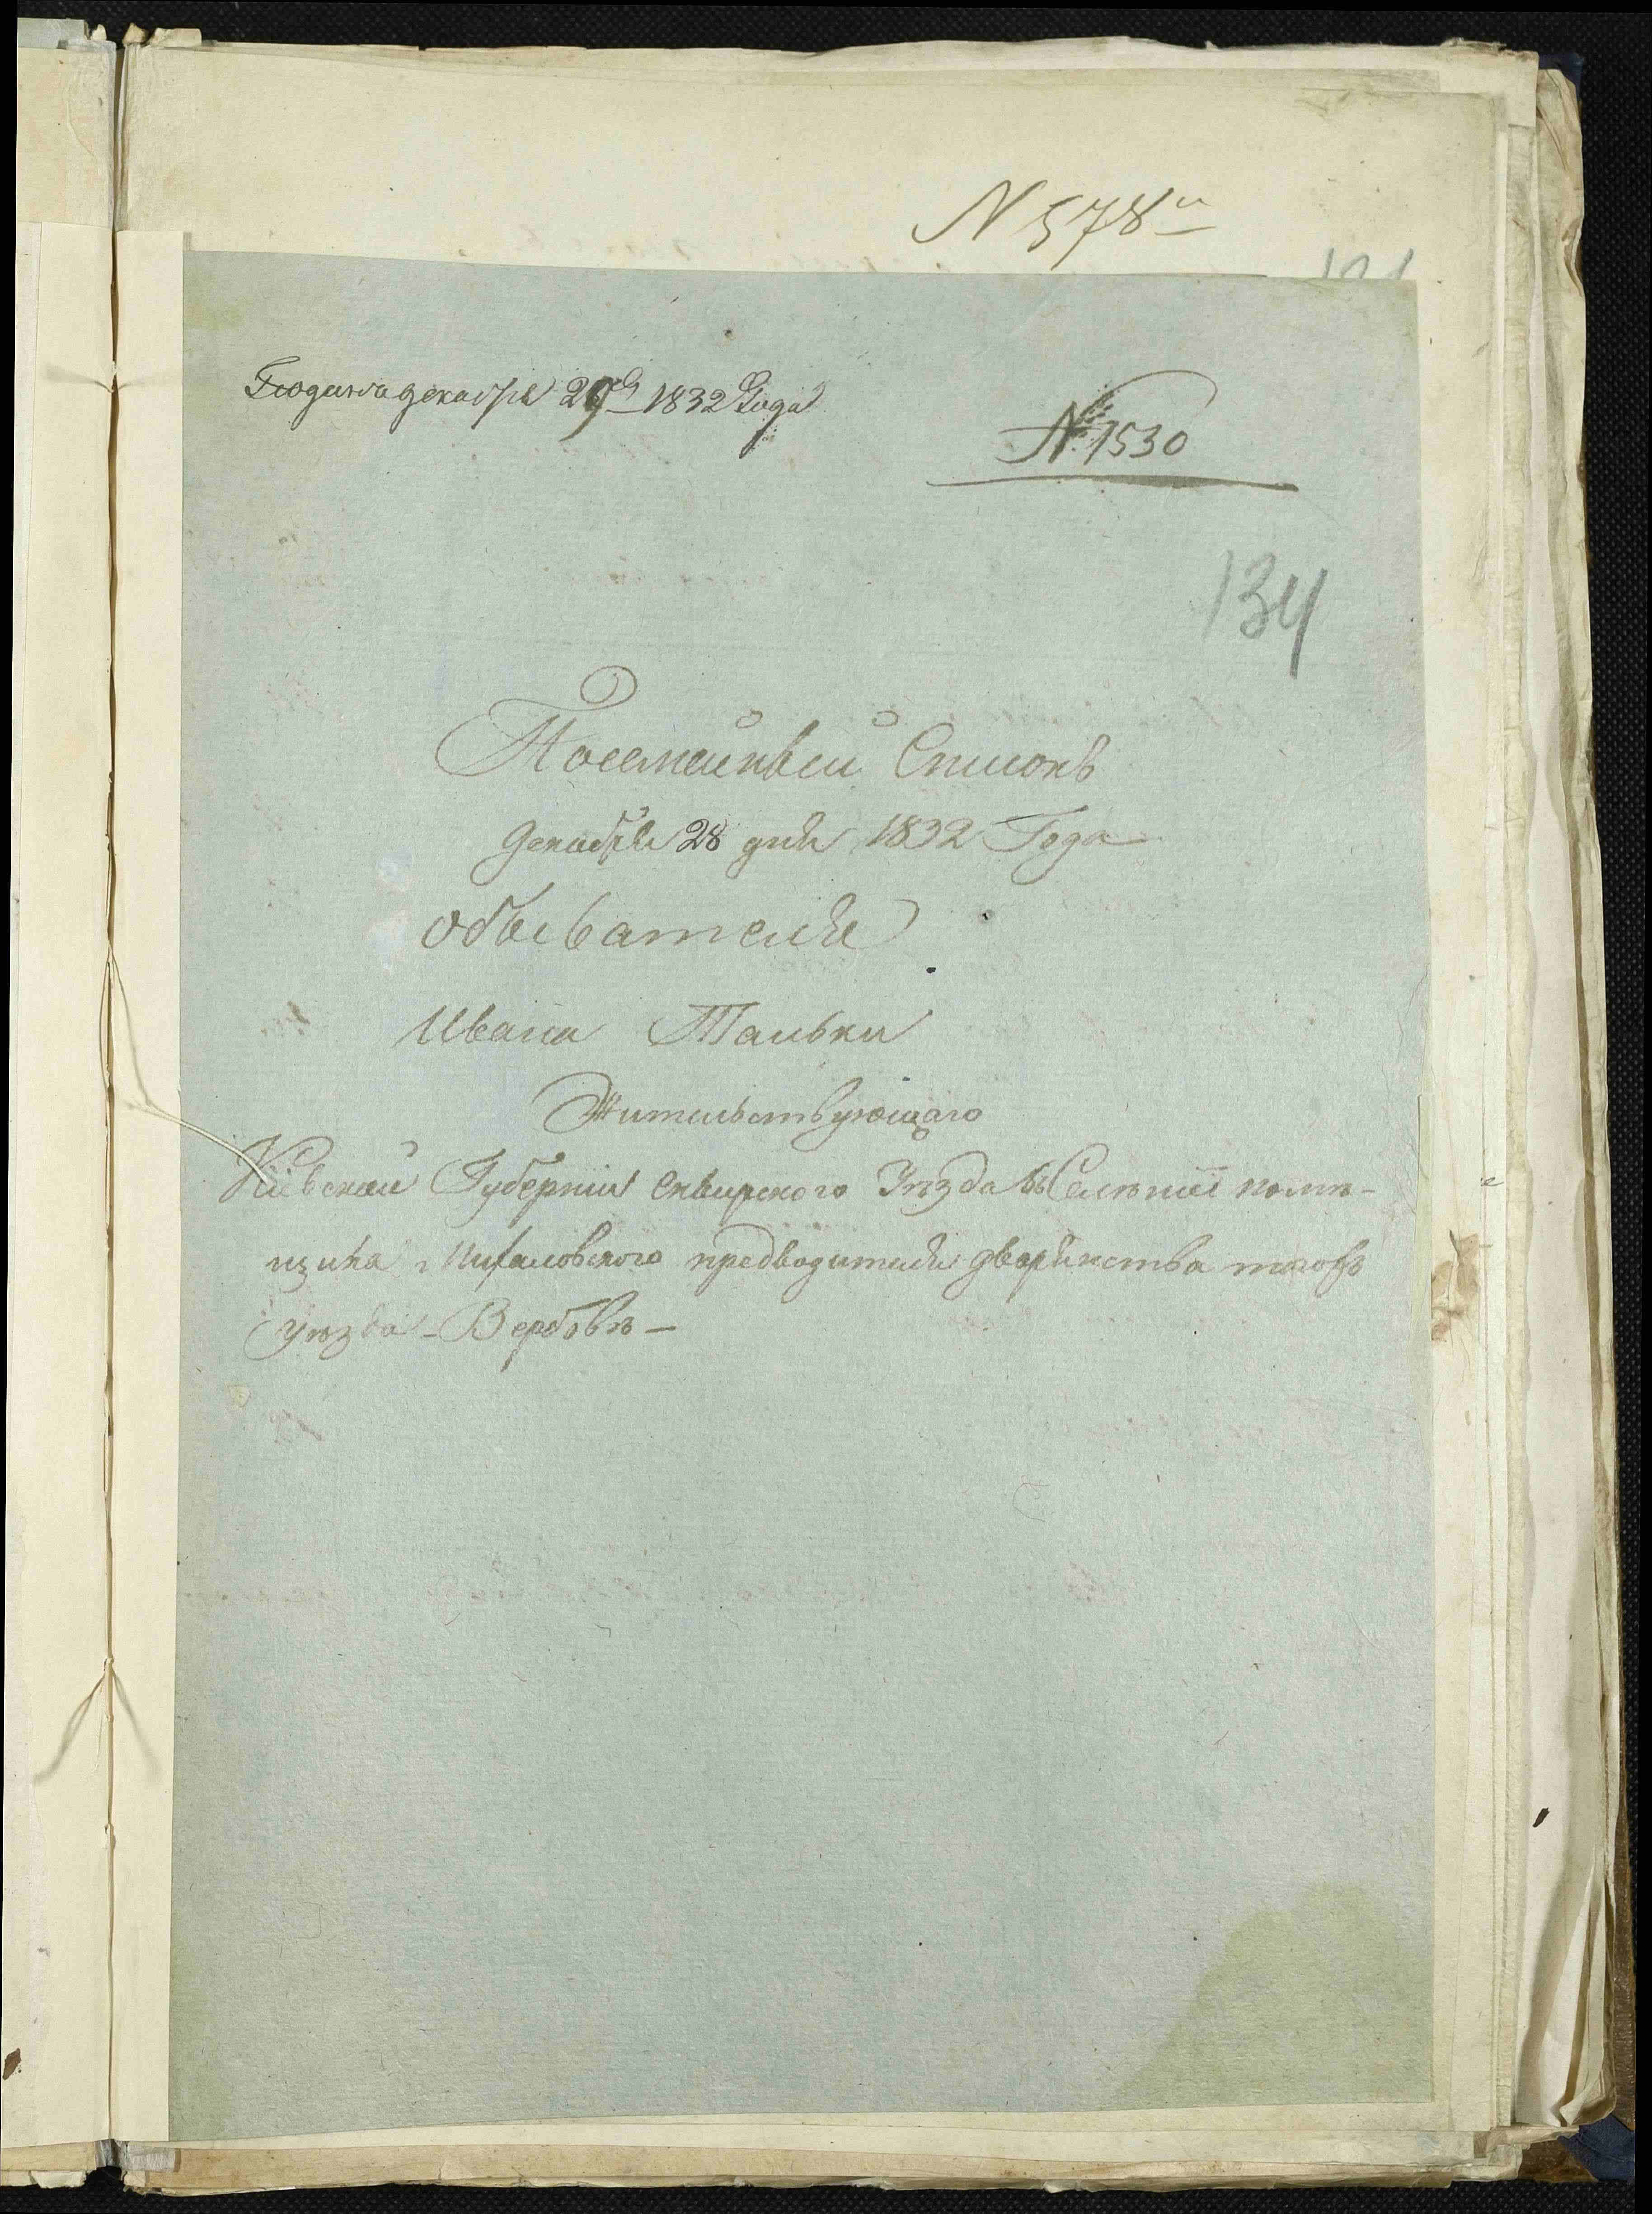 N 578й
Подана декабря 29го 1832 Года
№ 1530
134
Посемейный Списокъ
декабря 28 дня 1832 Года
обывателя
Ивана Талька
Жительствующаго
Кіевской Губерніи Сквирского Уѣзда въ Селеніи помѣ-
щика предводителя дворянства тогожъ
уѣзда - Вербовѣ -